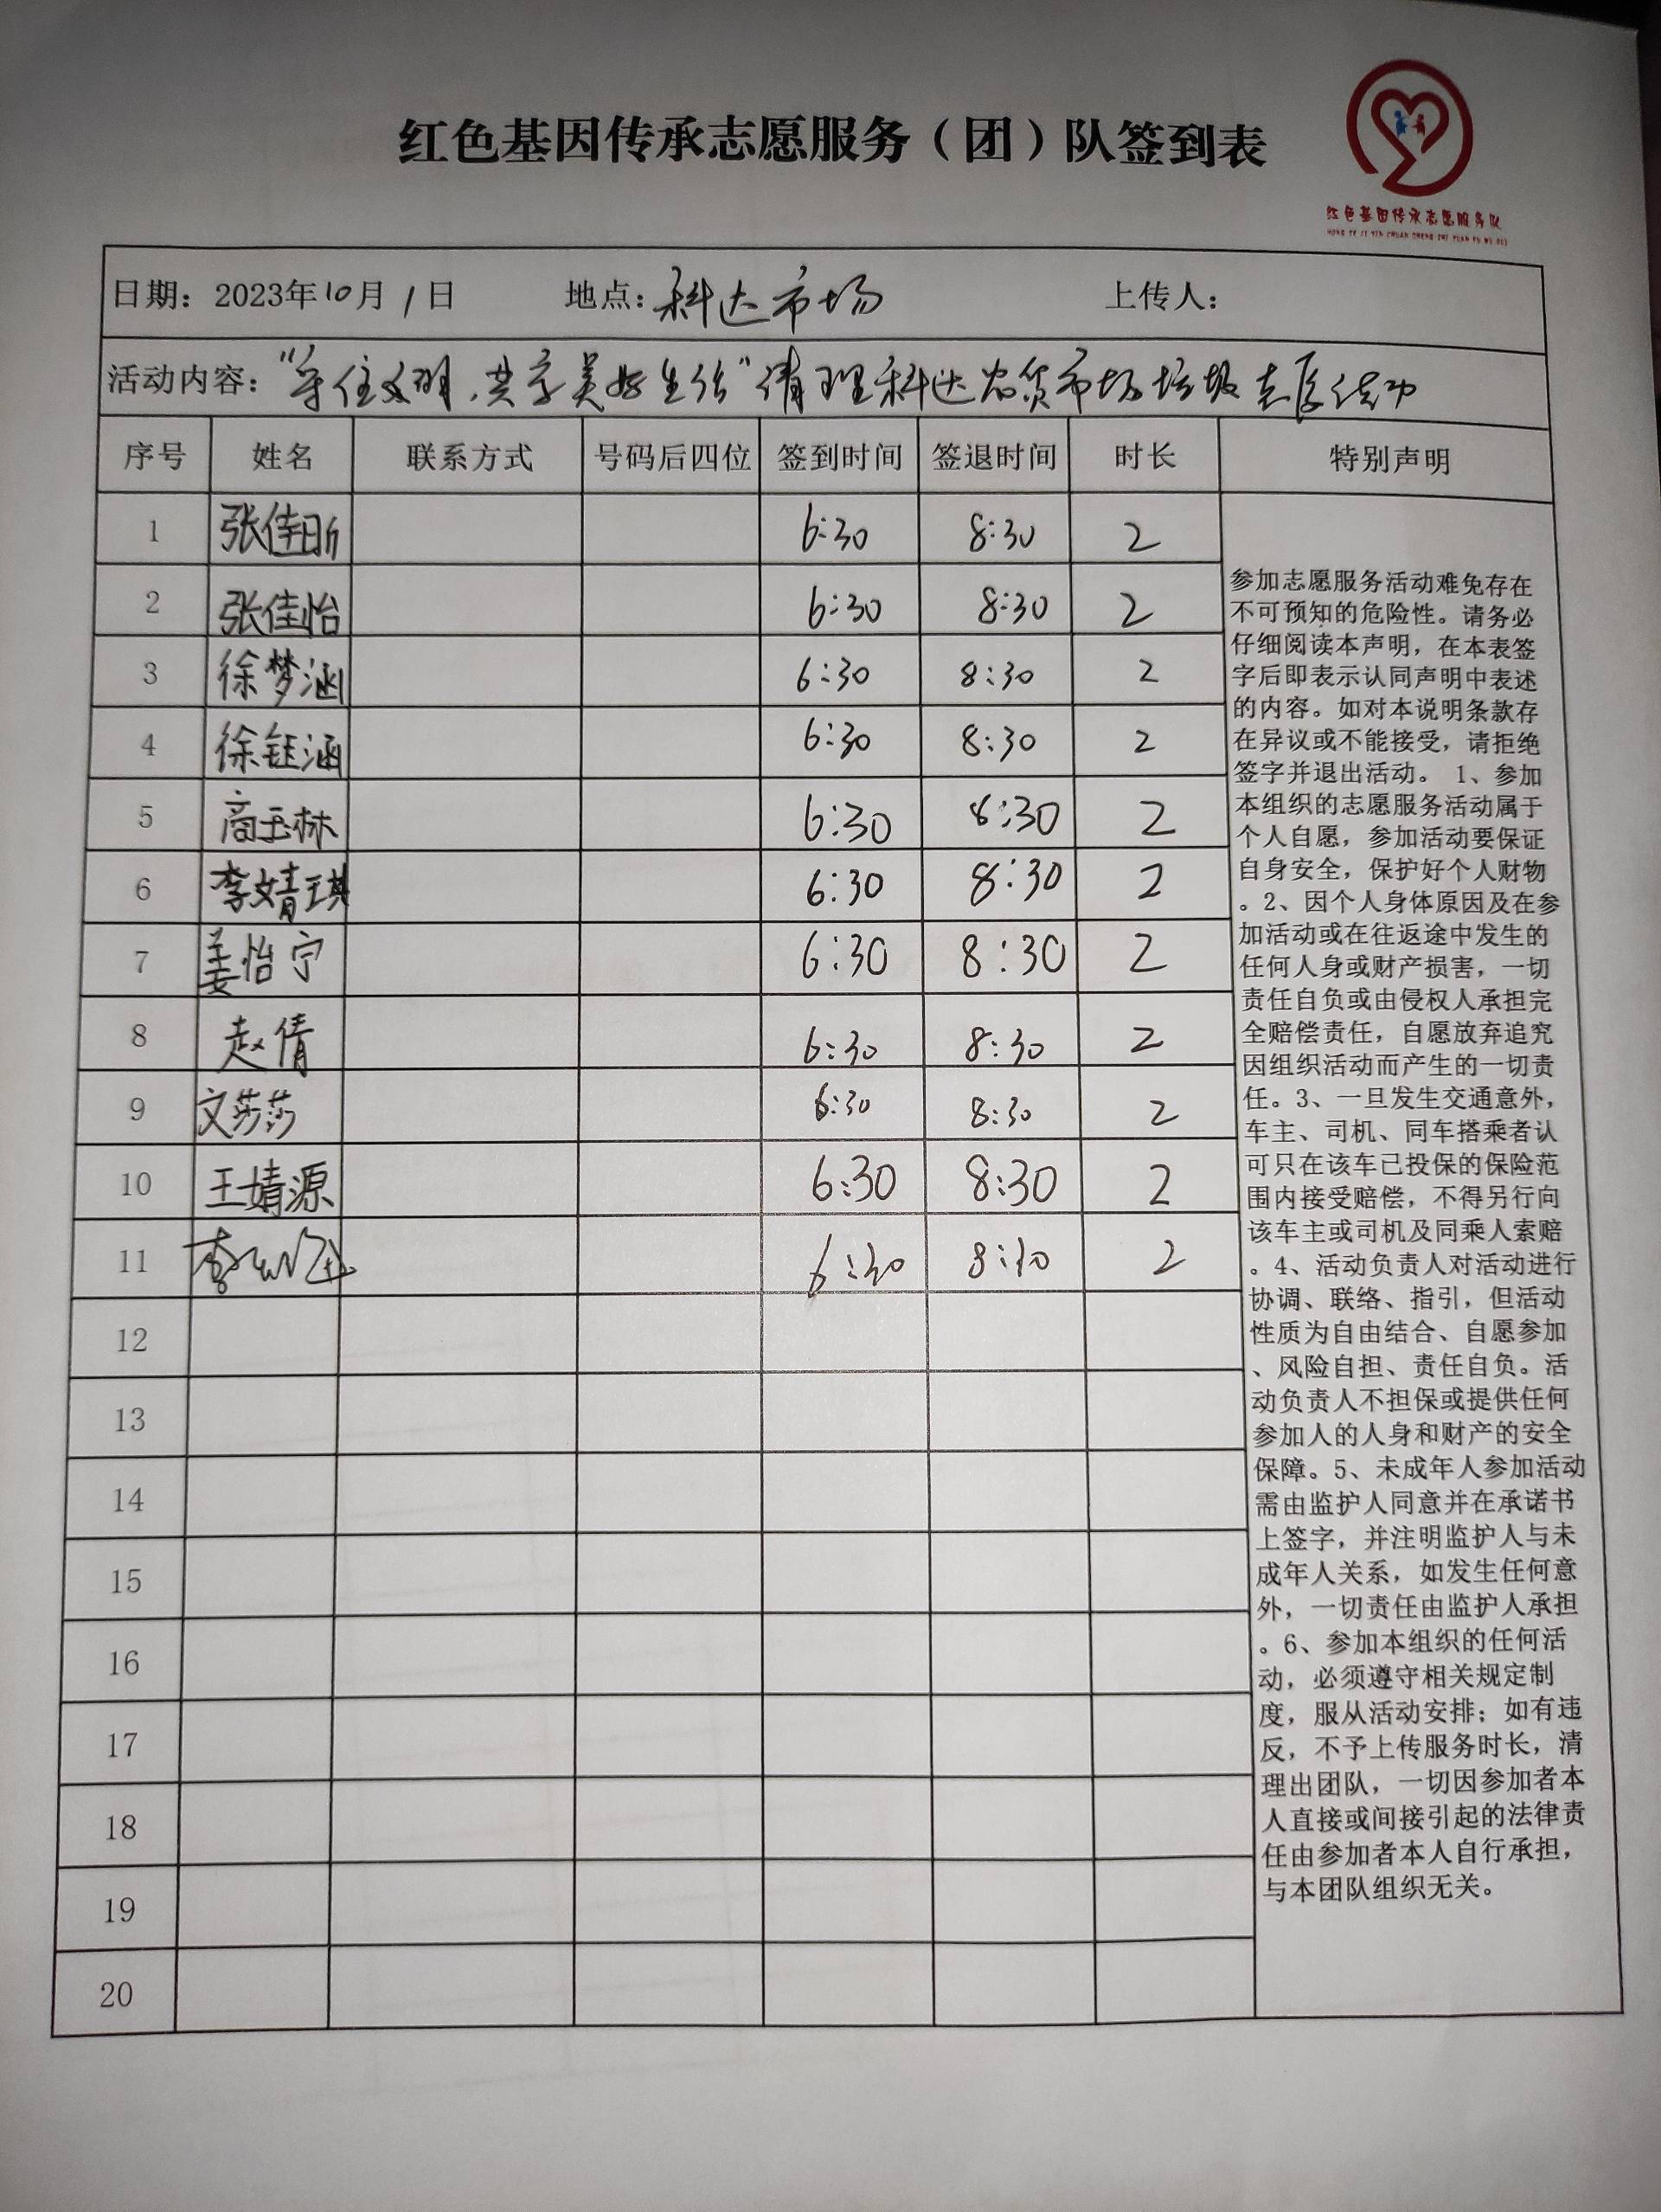 红色基因传承志愿服务（团）队签到表
红色基因传承志愿服务队
HONG SE JI YIN CHUAN CHENG ZHI YUAN FU WU DUI
日期：2023年10月1日 地点：科达市场 上传人：
活动内容："守住文明，共享美好生活"清理科达农贸市场垃圾志愿活动
序号 姓名 联系方式 号码后四位 签到时间 签退时间 时长 特别声明
1 张佳昕 6:30 8:30 2
2 张佳怡 6:30 8:30 2
3 徐梦涵 6:30 8:30 2
4 徐钰涵 6:30 8:30 2
5 商玉林 6:30 8:30 2
6 李婧琪 6:30 8:30 2
7 姜怡宁 6:30 8:30 2
8 赵倩 6:30 8:30 2
9 文莎莎 6:30 8:30 2
10 王婧源 6:30 8:30 2
11 李 6:30 8:30 2
12
13
14
15
16
17
18
19
20
参加志愿服务活动难免存在
不可预知的危险性。请务必
仔细阅读本声明，在本表签
字后即表示认同声明中表述
的内容。如对本说明条款存
在异议或不能接受，请拒绝
签字并退出活动。 1、参加
本组织的志愿服务活动属于
个人自愿，参加活动要保证
自身安全，保护好个人财物
。2、因个人身体原因及在参
加活动或在往返途中发生的
任何人身或财产损害，一切
责任自负或由侵权人承担完
全赔偿责任，自愿放弃追究
因组织活动而产生的一切责
任。3、一旦发生交通意外，
车主、司机、同车搭乘者认
可只在该车已投保的保险范
围内接受赔偿，不得另行向
该车主或司机及同乘人索赔
。4、活动负责人对活动进行
协调、联络、指引，但活动
性质为自由结合、自愿参加
、风险自担、责任自负。活
动负责人不担保或提供任何
参加人的人身和财产的安全
保障。5、未成年人参加活动
需由监护人同意并在承诺书
上签字，并注明监护人与未
成年人关系，如发生任何意
外，一切责任由监护人承担
。6、参加本组织的任何活
动，必须遵守相关规定制
度，服从活动安排；如有违
反，不予上传服务时长，清
理出团队，一切因参加者本
人直接或间接引起的法律责
任由参加者本人自行承担，
与本团队组织无关。